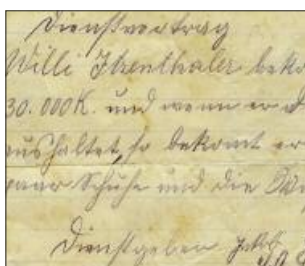 Dienstvertrag
Willi Itzenthaler beko
30.000 K. und wenn er d
aushaltet, so bekomt er
paar Schuhe und die
Dienstgeber